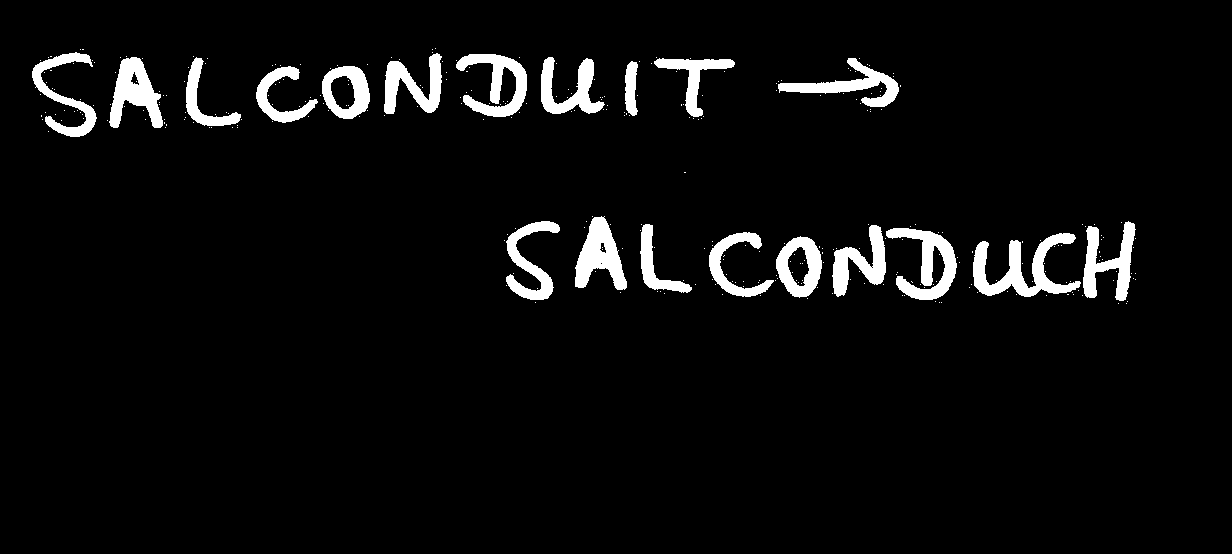 SALCONDUIT →
SALCONDUCH